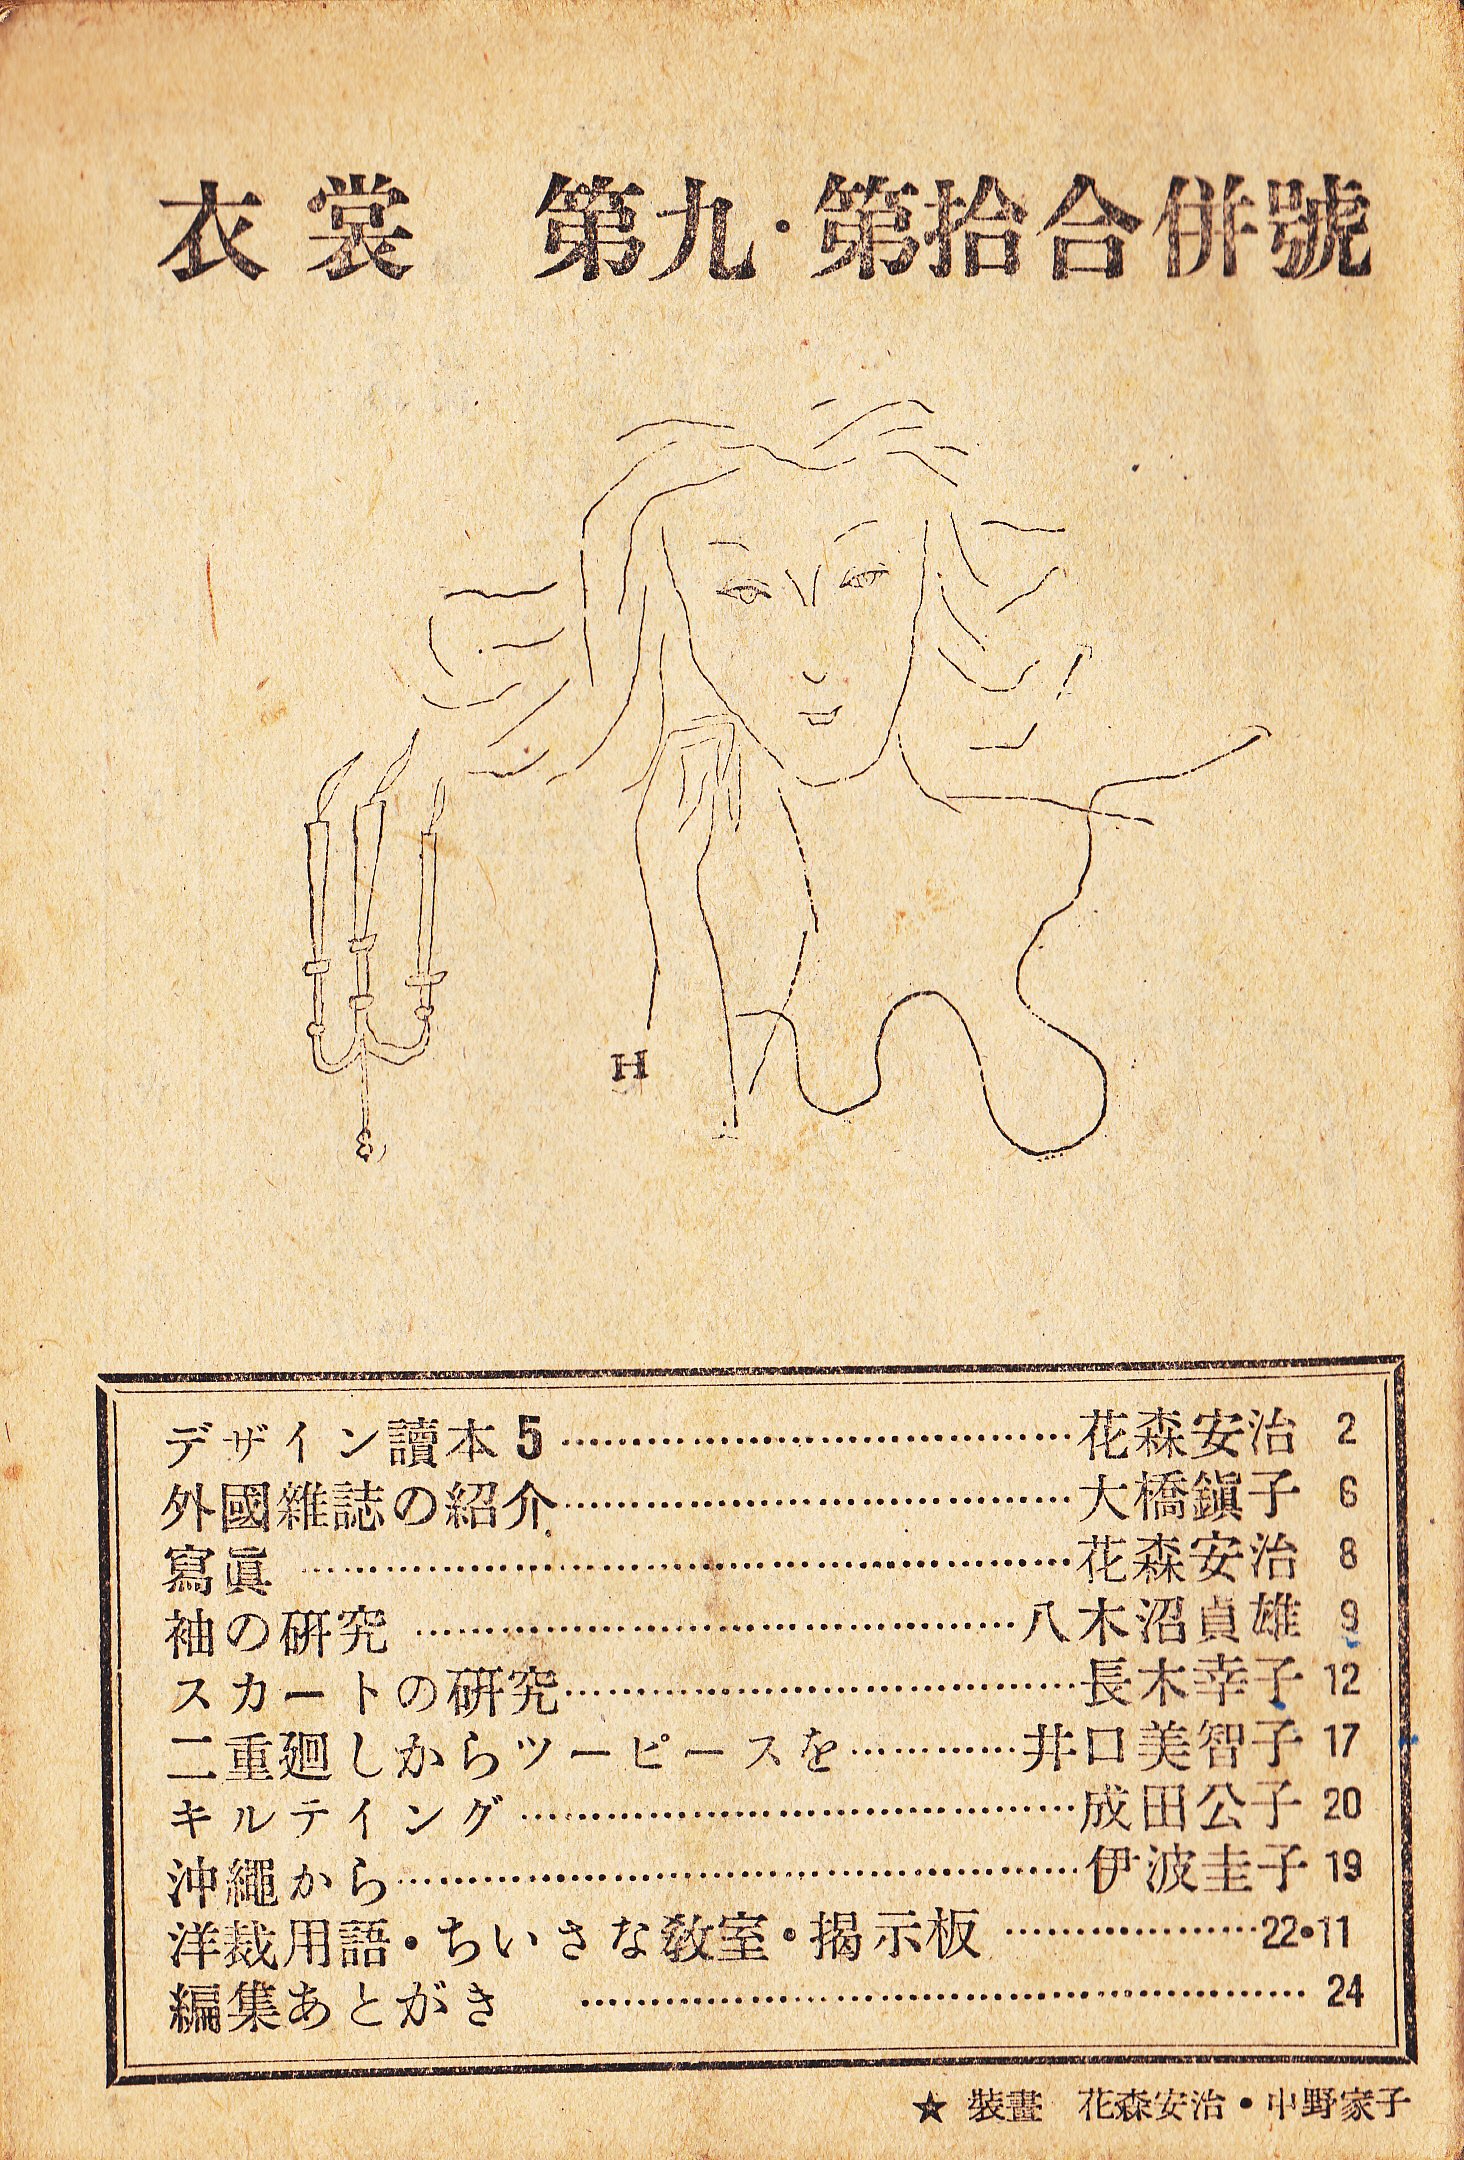 衣裳 第九・第拾合併號
H
デザイン讀本5……………………………花森安治 2
外國雜誌の紹介……………………………大橋鎭子 6
寫眞……………………………花森安治 8
袖の研究……………………………八木沼貞雄 9
スカートの研究……………………………長木幸子 12
二重廻しからツーピースを…………井口美智子 17
キルテイング……………………………成田公子 20
沖繩から……………………………伊波圭子 19
洋裁用語・ちいさな敎室・揭示板………………22・11
編集あとがき……………………………24
★ 裝畫 花森安治・中野家子